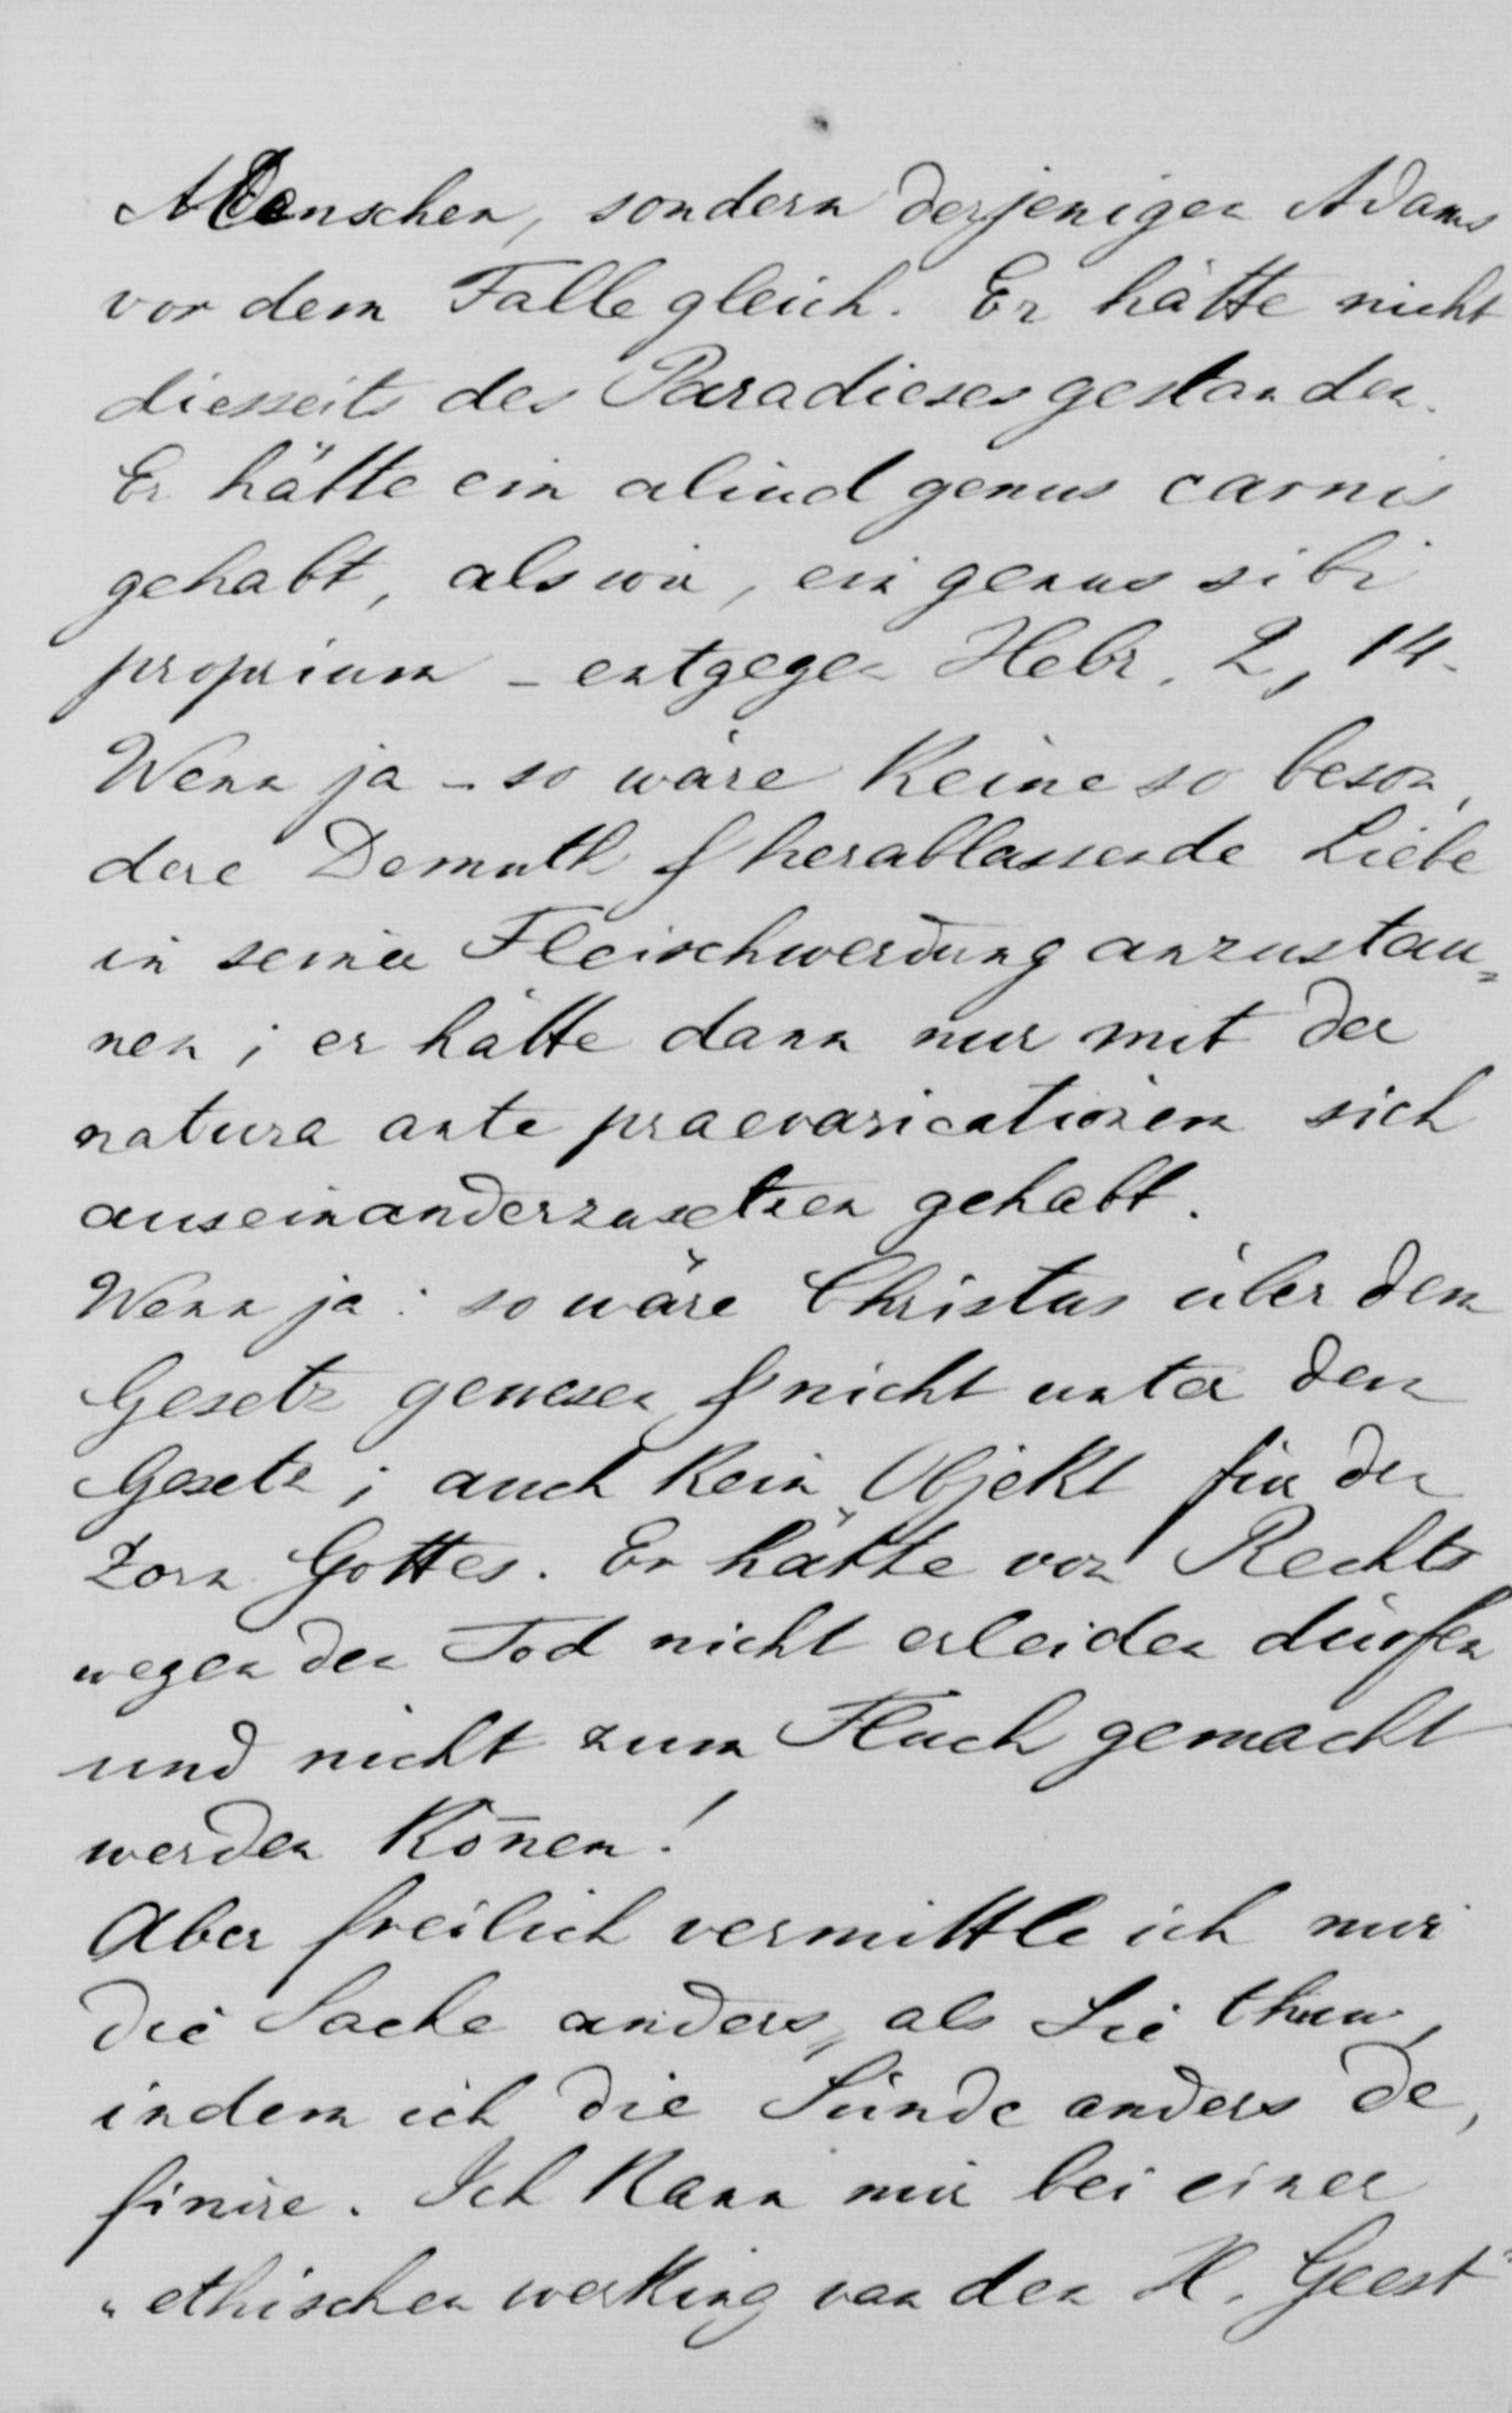 Menschen, sondern derjenigen Adams
vor dem Falle gleich. Er hätte nicht
diesseits des Paradieses gestanden.
Er hätte ein aliud genus carnis
gehabt, als wir, ein genus sibi
proprium – entgegen Hebr. 2, 14.
Wenn ja – so wäre keine so beson,
dere Demuth & herablassende Liebe
in seiner Fleischwerdung anzustau=
nen; er hätte dann nur mit der
natura ante praevaricationem sich
auseinanderzusetzen gehabt.
Wenn ja: so wäre Christus über dem
Gesetz gewesen & nicht unter dem
Gesetz; auch kein Objekt für den
Zorn Gottes. Er hätte von Rechts
wegen den Tod nicht erleiden dürfen
und nicht zum Fluch gemacht
werden kön̄en!
Aber freilich vermittle ich mir
die Sache anders, als Sie thun,
indem ich die Sünde anders de,
finire. Ich kann mir bei einer
„ethischen werking van den H. Geest"